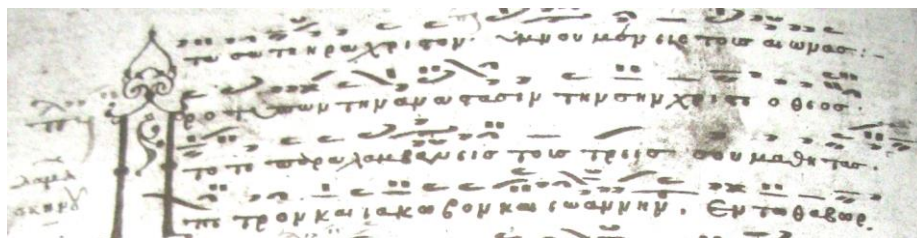 τα σωτηρα χριστον. ὑμνουμεν εις τους αιωνας:-
Προτυπων την αναστασιν την σην χριστε ο θεος.
τοτε παραλαμβανεις τους τρεις σου μαθητας.
πετρον και ιακωβον και ιωαννην. Εν τω θαβωρ.